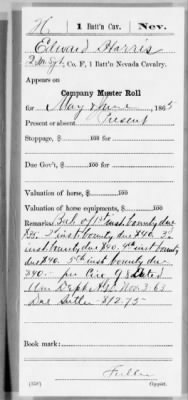 H. 1 Batt'n Cav. Nev.
Edward Harris
Q.M. Sgt., Co. F, 1 Batt'n Nevada Cavalry.
Appears on
Company Muster Roll
for May & June, 1865
Present or absent Present
Stoppage, $ 100 for
Due Gov't, $ 100 for
Valuation of horse, $ 100
Valuation of horse equipments, $ 100
Remarks: Bal of 1st inst. bounty due
$25. 2d inst bounty due $40. 3d
inst bounty due $40. 4th inst bounty
due $40. 5th inst bounty due
$40. per Circ 98 dated
War Dept A.G.O. Nov. 3. 63
Due Sutler $12.75
Book mark:
Fuller
(358) Copyist.